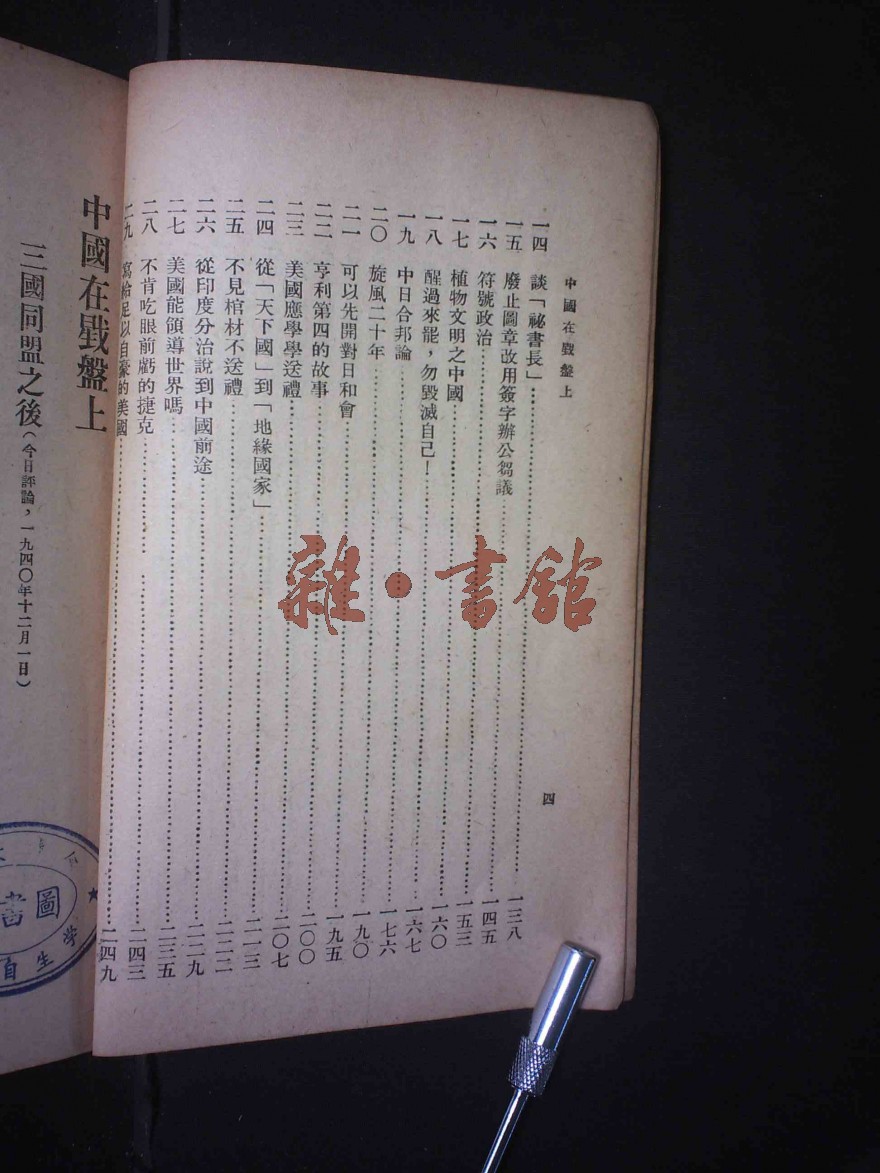 中國在戰盤上
四
一四 談「祕書長」 一三八
一五 廢止圖章改用簽字辦公芻議 一四五
一六 符號政治 一五三
一七 植物文明之中國 一六〇
一八 醒過來罷，勿毀滅自己！ 一六七
一九 中日合邦論 一七六
二〇 旋風二十年 一九〇
二一 可以先開對日和會 一九五
二二 亨利第四的故事 二〇〇
二三 美國應學學送禮 二〇七
二四 從「天下國」到「地緣國家」 二一三
二五 不見棺材不送禮 二二二
二六 從印度分治說到中國前途 二二九
二七 美國能領導世界嗎 二三五
二八 不肯吃眼前虧的捷克 二四三
二九 寫給足以自豪的美國 二四九
中國在戰盤上
三國同盟之後（今日評論，一九四〇年十二月一日）
圖書
学生自
雜·書舘